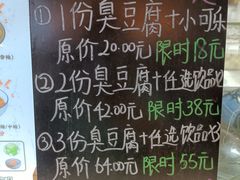 ①1份臭豆腐+小可乐
原价20.00元 限时18元
②2份臭豆腐+任选饮品X2
原价42.00元 限时38元
③3份臭豆腐+任选饮品X3
原价64.00元 限时55元